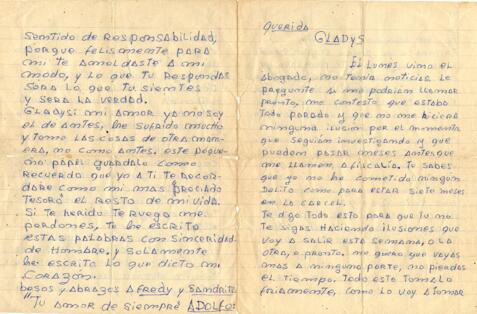 Querida
GLADYS
El Lunes vino el
abogado, no tenia noticias. Le
pregunte si me podian llamar
pronto, me contesto que estaba
todo parado y que no me hiciera
ninguna ilusion por el momento
que seguian investigando y que
puedem pasar meses antesque
me llamen a fiscalia. Tu sabes
que yo no he cometido ningun
Delito como para estar siete meses
en la carcel.
Te digo todo esto para que tu no
te sigas haciendo ilusiones que
voy a salir esta semana, o la
otra, o pronto. no quero que vayas
mas a ninguna parte, no pierdas
el tiempo. Todo esto tomalo
friamente, como lo voy a tomar
sentido de responsabilidad,
porque felismente para
mi te amoldaste a mi
modo, y lo que tu respondas
sera lo que tu sientes
y sera la verdad.
GLADYS: mi amor ya no soy
el de antes, he sufrido mucho
y tomo las cosas de otra man-
era, no como antes, este peque-
ño papel guardalo como
recuerdo que yo a ti te recor-
dare como mi mas preciado
tesoro el resto de mi vida.
Si te herido te ruego me
perdones, te he escrito
estas palabras con sinceridad
de hombre, y solamente
he escrito lo que dicto mi
corazon.
besos y abrazos a Fredy y Sandrita
"Tu amor de siempre ADOLFO"